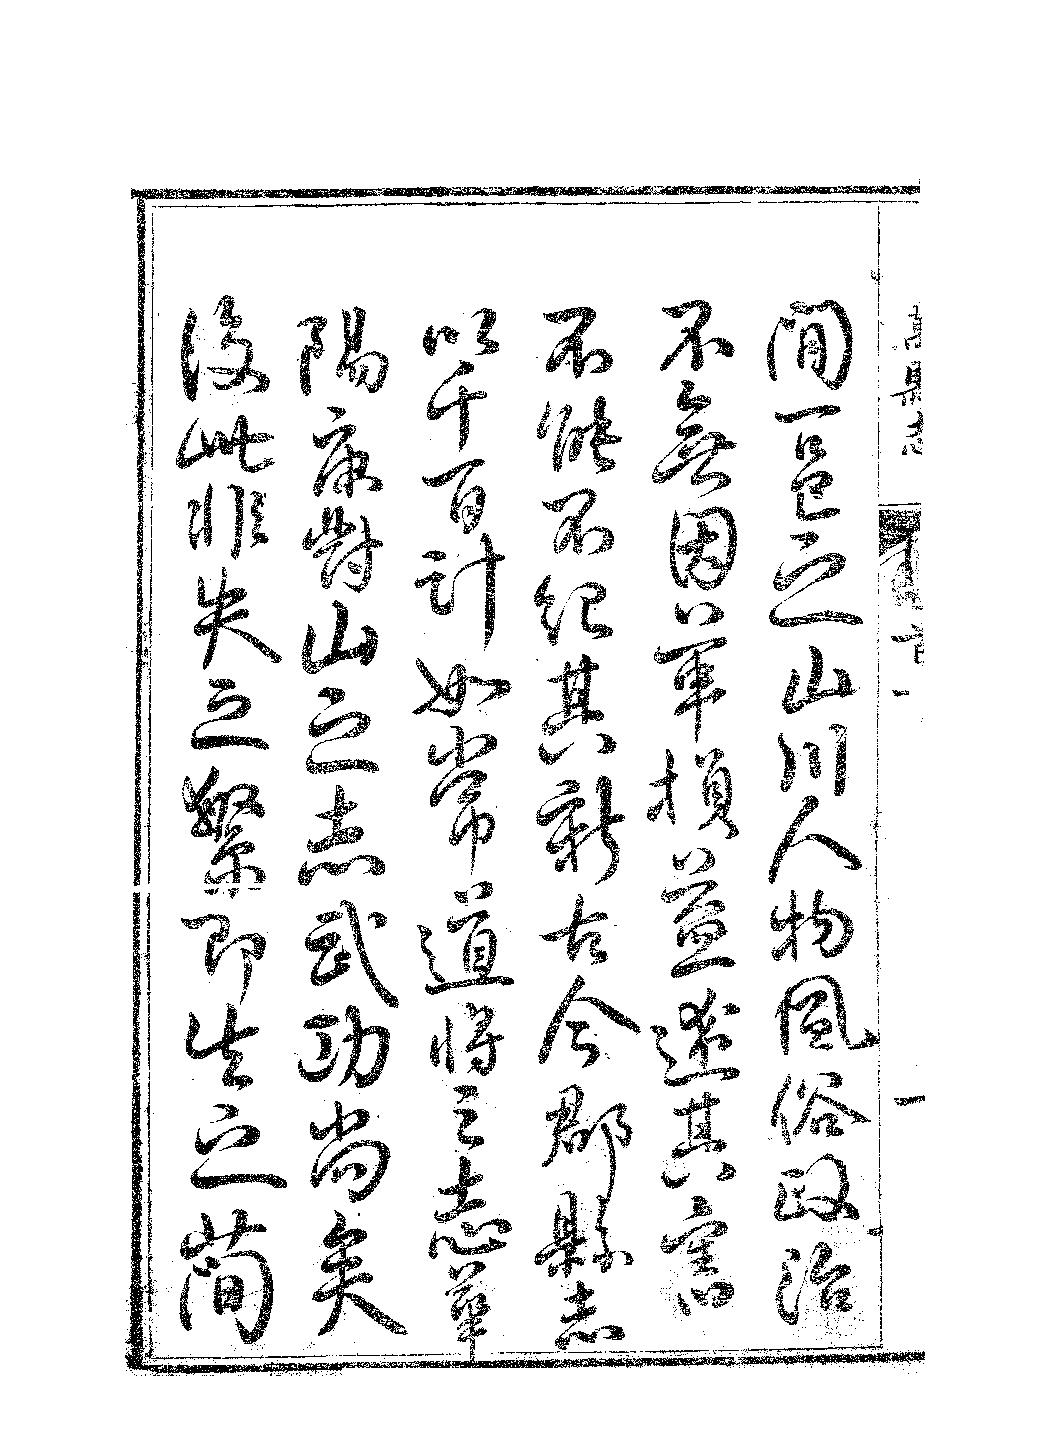 間一邑之山川人物風俗政治
不無因革損益遂其舊
不能不紀其新古今郡縣志
以千百計如常道將之志華
陽康對山之志武功尚矣
後此非失之繁即失之簡
縣志